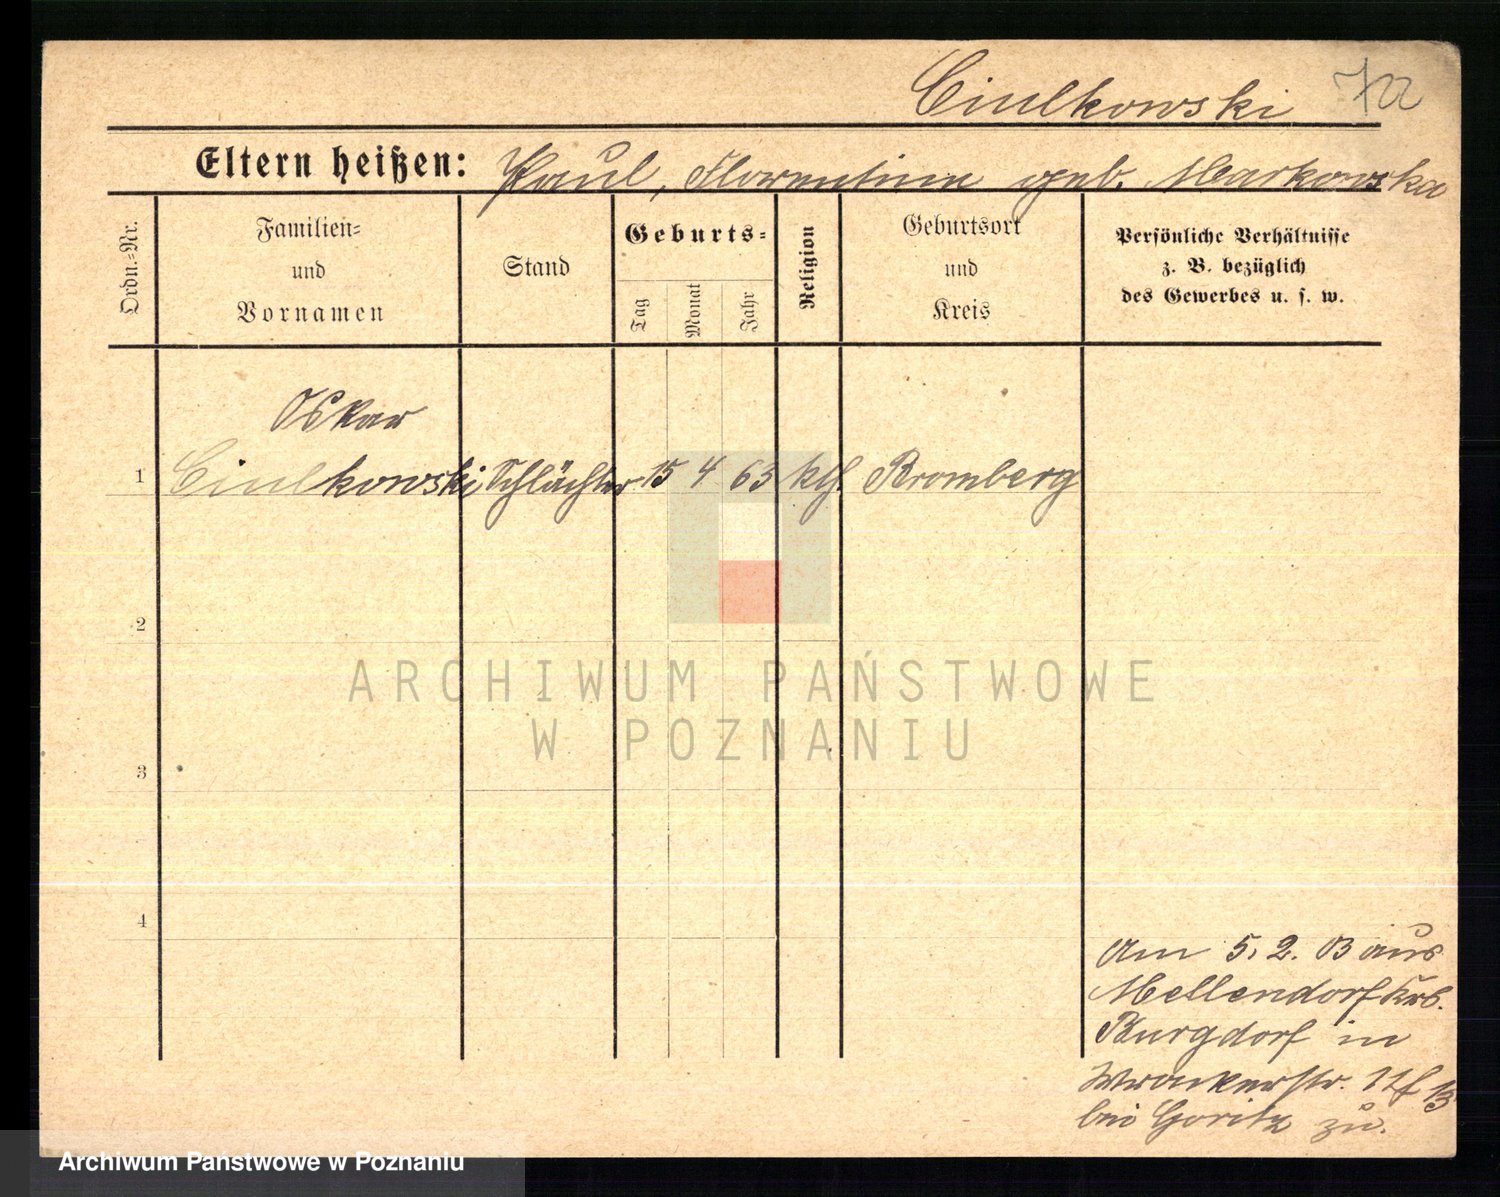 Ciulkowski
Eltern heißen: Paul, Florentine geb. Markowska
Ordn.=Nr.
Familien=
und
Vornamen
Stand
Geburts=
Tag
Monat
Jahr
Religion
Geburtsort
und
Kreis
Persönliche Verhältnisse
z. B. bezüglich
des Gewerbes u. s. w.
Oskar
1 Ciulkowski Schlächter 15 4 63 kth. Bromberg
2
ARCHIWUM PAŃSTWOWE
W POZNANIU
3
4
Am 5. 2. 03 aus
Mellendorf Krs.
Burgdorf in
Wronkerstr.
bei Goritz zu.
Archiwum Państwowe w Poznaniu